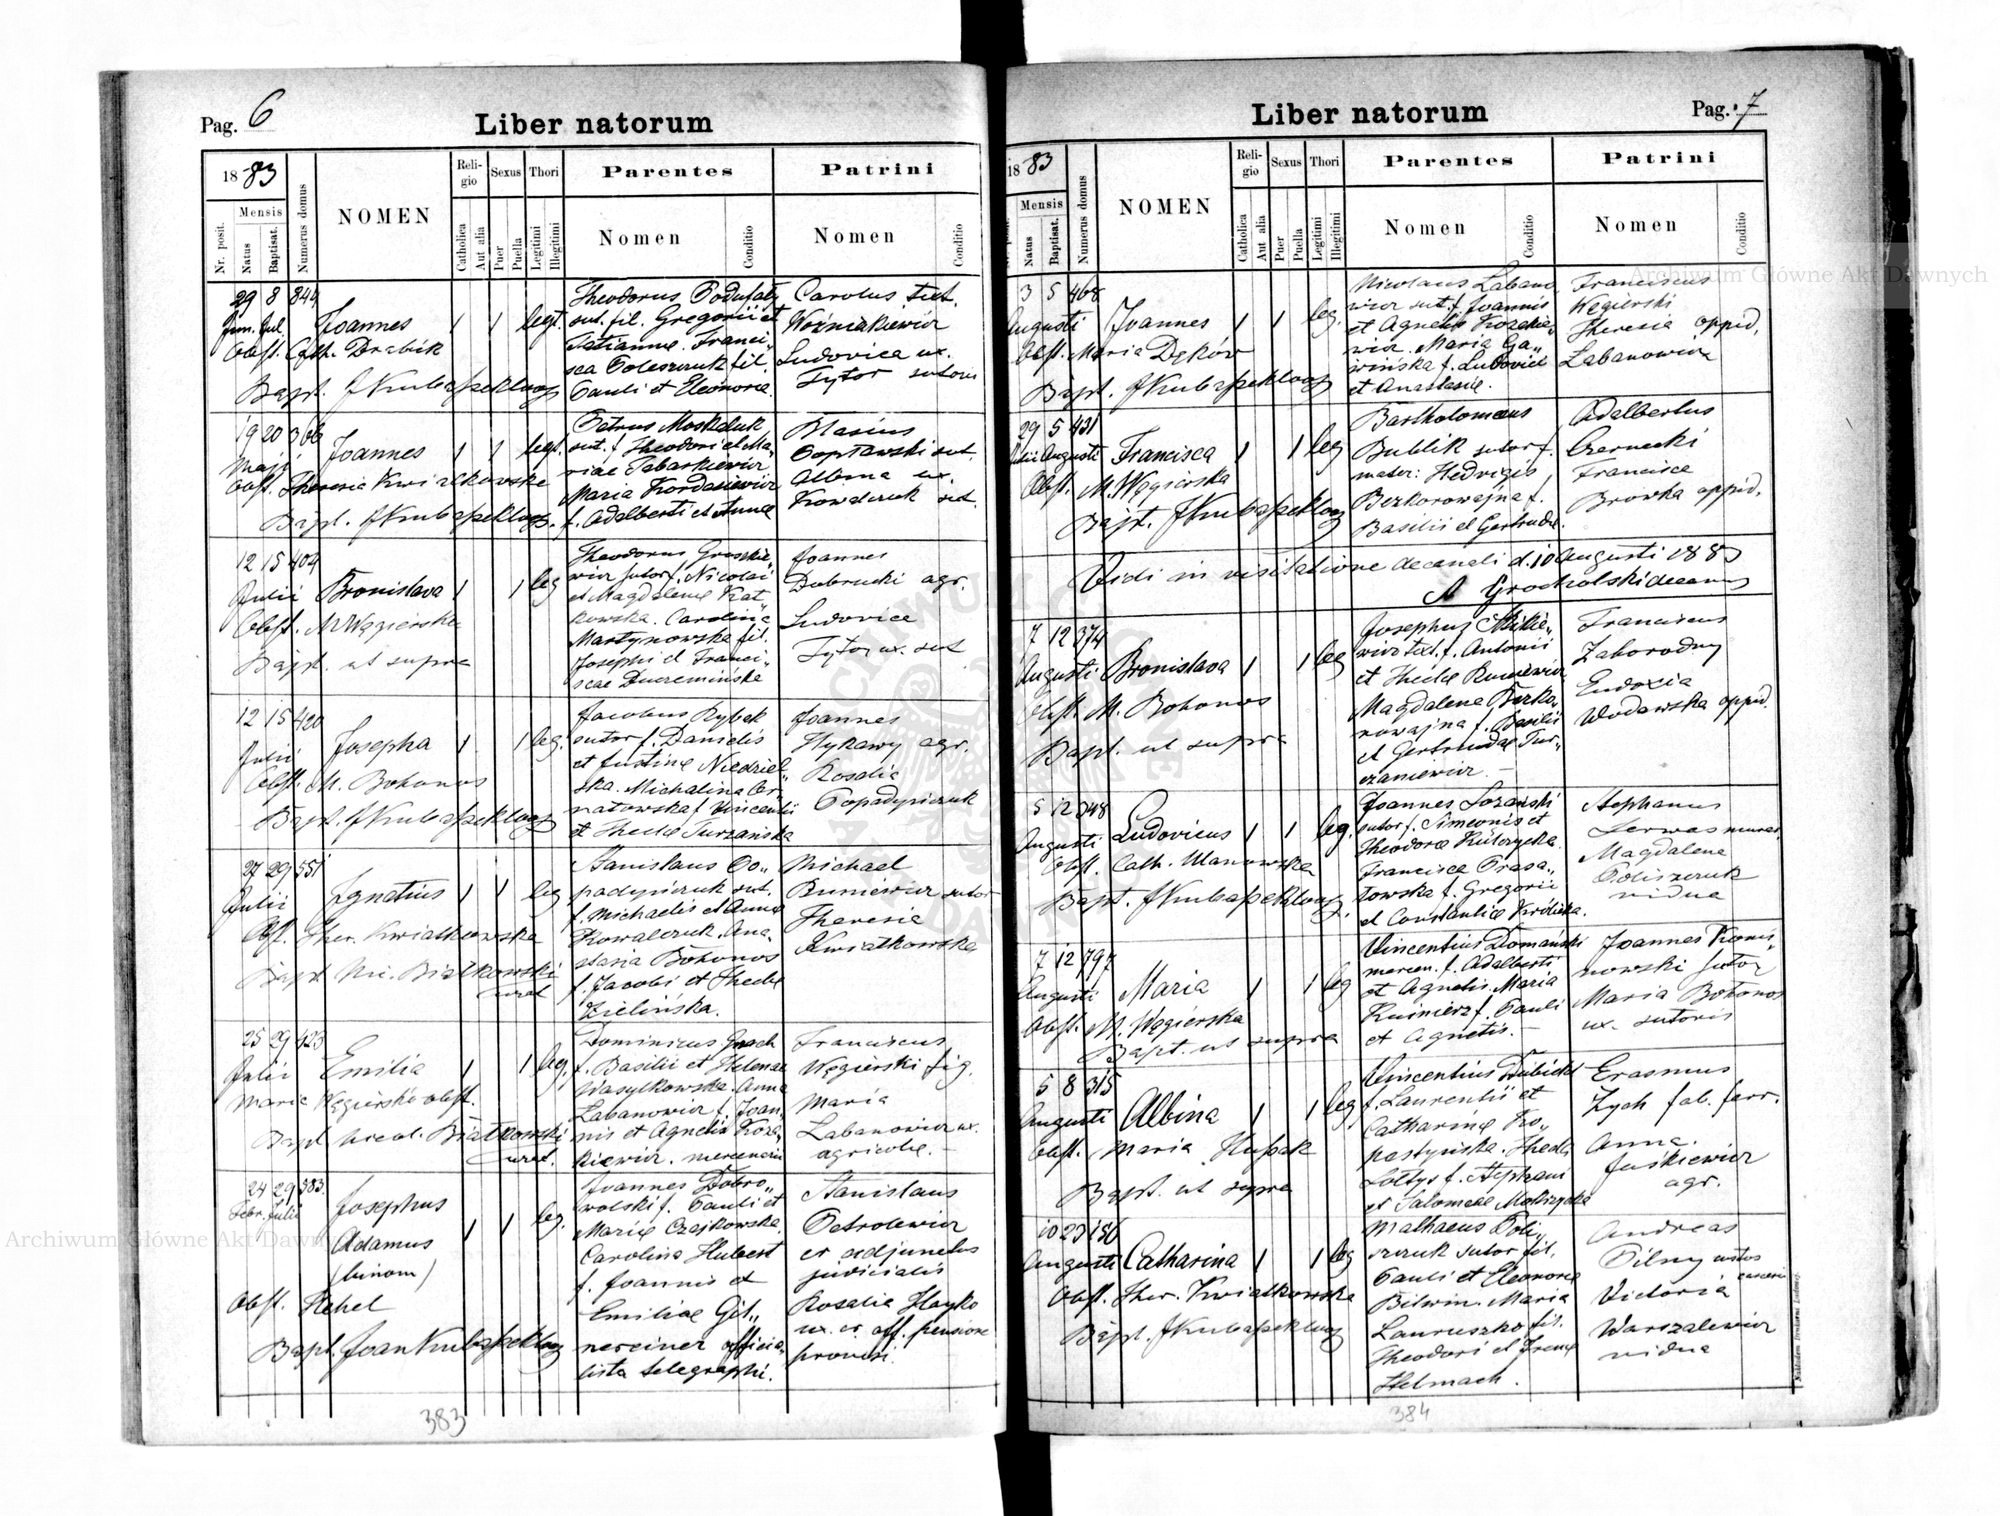 Pag. 6
Liber natorum
1883
Nr. posit.
Mensis
Natus
Baptisat.
Numerus domus
NOMEN
Religio
Catholica
Aut alia
Sexus
Puer
Puella
Thori
Legitimi
Illegitimi
Parentes
Nomen
Conditio
Patrini
Nomen
Conditio
29 8 844
Jun. Jul. Joannes 1 1 legt.
Obst. Cath. Drabik
Bapt.
Theodorus
sut. fil. Gregorii et
Tatianna. Franci„
sca Poleszczuk fil.
Pauli et Eleonora.
Carolus text.
Woźniakiewicz
Ludovica ux.
Tytor sutoris
19 20 366
Maji Joannes 1 1 legt.
Obst. Theresia Kwiatkowska
Bapt.
Petrus Moskaluk
sut. f. Theodori et Ma„
riae Tabarkiewicz
Maria Kordasiewicz
f. Adalberti et Anna
Blasius
Popławski sut.
Albina ux.
Kowalczuk sut.
12 15 404
Julii Bronislava 1 1 leg
Obst. M Węgierska
Bapt. ut supra
Theodorus
wicz sutor f. Nicolai
et Magdalena Kat„
kowska. Carolina
Martynowska fil.
Josephi et Franci„
scae
Joannes
Dobrucki agr.
Ludovica
Tytor ux. sut
12 15 420
Julii Josepha 1 1 leg.
Obst. M. Bohonos
Bapt.
Jacobus Rybak
sutor f. Danielis
et Justina Niedziel„
ska. Michalina Cer„
natowska f. Vincentii
et Thecla Turzańska
Joannes
Hykawy agr.
Rosalia
Popadyniczuk
27 29 551
Julii Ignatius 1 1 leg
Obst. Ther. Kwiatkowska
Bapt Nic. Białkowski
curat
Stanislaus Po„
padyniczuk sut.
f. Michaelis et Anna
Kowalczuk. Ana„
stasia Bohonos
f. Jacobi et Thecla
Zielińska.
Michael
Buniewicz sutor
Theresia
Kwiatkowska
25 29 423
Julii Emilia 1 1 leg.
Maria Węgierska obst.
Bapt Nicol. Białkowski
curat.
Dominicus Gnach
f. Basilii et Helenae
Wasylkowska. Anna
Labanowicz f. Joan„
nis et Agnetis Koza„
kiewicz. mercenarii
Franciscus
Węgierski fig.
Maria
Labanowicz ux.
agricolae.
24 29 383
Febr. Julii Josephus
Adamus 1 1 leg.
(binom)
Obst. Hehel
Bapt. Joan
Joannes Dobro„
wolski f. Pauli et
Maria Czajkowska
Carolina Hubert
f. Joannis et
Emiliae Git„
nereiner officia„
lista telegraphi.
Stanislaus
Petrolewicz
er adjunctus
judicialis
Rosalia Hayko
ux. er. off. pensione
provisi.
383
Pag. 7
Liber natorum
1883
Nr. posit.
Mensis
Natus
Baptisat.
Numerus domus
NOMEN
Religio
Catholica
Aut alia
Sexus
Puer
Puella
Thori
Legitimi
Illegitimi
Parentes
Nomen
Conditio
Patrini
Nomen
Conditio
3 5 468
Augusti Joannes 1 1 leg.
Obst. Maria Dęków
Bapt.
Nicolaus Labano„
wicz sut. f. Joannis
et Agnetis Kozakie„
wicz. Maria Ga„
wińska f. Ludovici
et Anastasiae.
Franciscus
Węgierski
Theresia oppid.
Labanowicz
29 5 431
Julii Augusti Francisca 1 1 leg
Obst. M. Węgierska
Bapt.
Bartholomaeus
Bublik sutor f.
mater: Hedvigis
Bezkorowajna f.
Basilii et Gertrudae.
Adalbertus
Czernecki
Francisca
Browka oppid.
Vidi in visitatione decanali d. 10 Augusti 1883
A Grocholski decanus
7 12 374
Augusti Bronislava 1 1 leg
Obst. M. Bohonos
Bapt. ut supra
Josephus
wicz text. f. Antonii
et Thecla Buniewicz
Magdalena Bezko„
rowajna f. Basilii
et Gertrudae Tur„
czaniewicz.
Franciscus
Zahorodny
Eudoxia
Wodawska oppid.
5 12 348
Augusti Ludovicus 1 1 leg.
Obst. Cath. Ulanowska
Bapt.
Joannes Lozański
sutor f. Simeonis et
Theodora
Francisca Prasa„
towska f. Gregorii
et Constantia Królicka.
Stephanus
Serwas murar.
Magdalena
Poliszczuk
vidua
7 12 797
Augusti Maria 1 1 leg
Obst. M. Węgierska
Bapt. ut supra
Vincentius Domański
mercen. f. Adalberti
et Agnetis. Maria
Kuśnierz f. Pauli
et Agnetis.
Joannes Komis„
nowski sutor
Maria Bohonos
ux. sutoris
5 8 315
Augusti Albina 1 1 leg
Obst. Maria Hupak
Bapt. ut supra
Vincentius Dubicki
f. Laurentii et
Catharina Ko„
pastyńska. Thecla
Łoltys f. Stephani
et Salomeae
Erasmus
Zych fab. ferr.
Anna
Juśkiewicz
agr.
10 23 156
Augusti Catharina 1 1 leg
Obst. Ther. Kwiatkowska
Bapt.
Mathaeus Poli„
szczuk sutor fil.
Pauli et Eleonora
Bilwin. Maria
Lauruszko fil.
Theodori et Irena
Helmach.
Andreas
Pilny custos
carceris
Victoria
Warszalewicz
vidua
384
Archiwum Główne Akt Dawnych